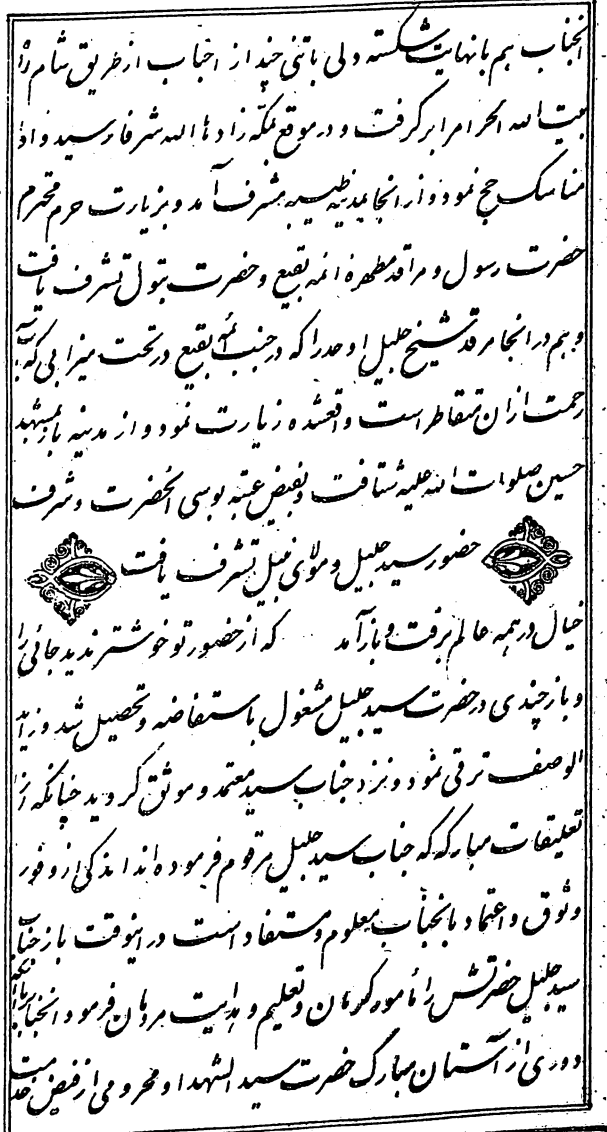 آنجناب هم بانهایت شکسته دلی باتنی چند از احباب از طریق شام راه
بیت الله الحرام را برگرفت و در موقع بمکه زادها الله شرفا رسید و اداء
مناسک حج نمود و از انجا بمدینه طیبه مشرف آمد و بزیارت حرم محترم
حضرت رسول و مراقد مطهره ائمه بقیع و حضرت بتول تشرف یافت
و هم در انجا مرقد شیخ جلیل اوحد را که در جنب ائمه بقیع در تحت میزابی که
رحمت ازان متقاطر است واقعشده زیارت نمود و از مدینه باز بمشهد
حسین صلوات الله علیه شتافت و بفیض عتبه بوسی انحضرت و شرف
حضور سید جلیل و مولای نبیل تشرف یافت
خیال در همه عالم برفت و باز آمد که از حضور تو خوشتر ندید جائی را
و باز چندی در حضرت سید جلیل مشغول باستفاضه و تحصیل شد و زاید
الوصف ترقی نمود و نزد جناب سید معتمد و موثق گردید چنانکه از
تعلیقات مبارکه که جناب سید جلیل مرقوم فرموده اند اندکی از وفور
وثوق و اعتماد بانجناب معلوم و مستفاد است در اینوقت باز جناب
سید جلیل حضرتش را مأمور کرمان و تعلیم و هدایت مردمان فرمود انجناب با آنکه
دوری از آستان مبارک حضرت سید الشهدا و محرومی از فیض خدمت